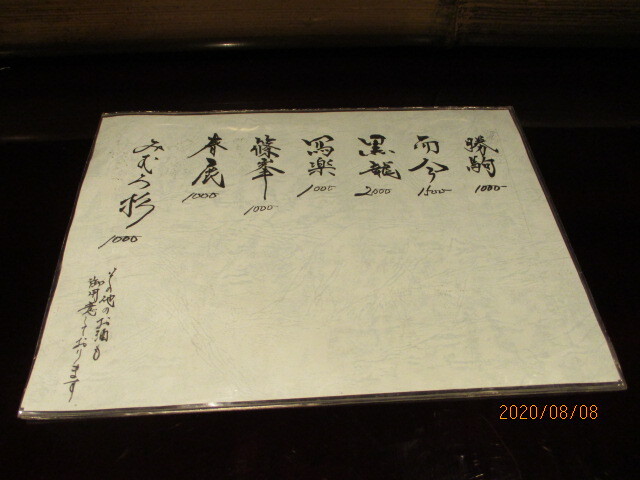 勝駒
1000-
而今
1500-
黒龍
2000
写楽
1000
篠峯
1000-
春鹿
1000-
みむろ杉
1000-
その他のお酒も
御用意しております
2020/08/08